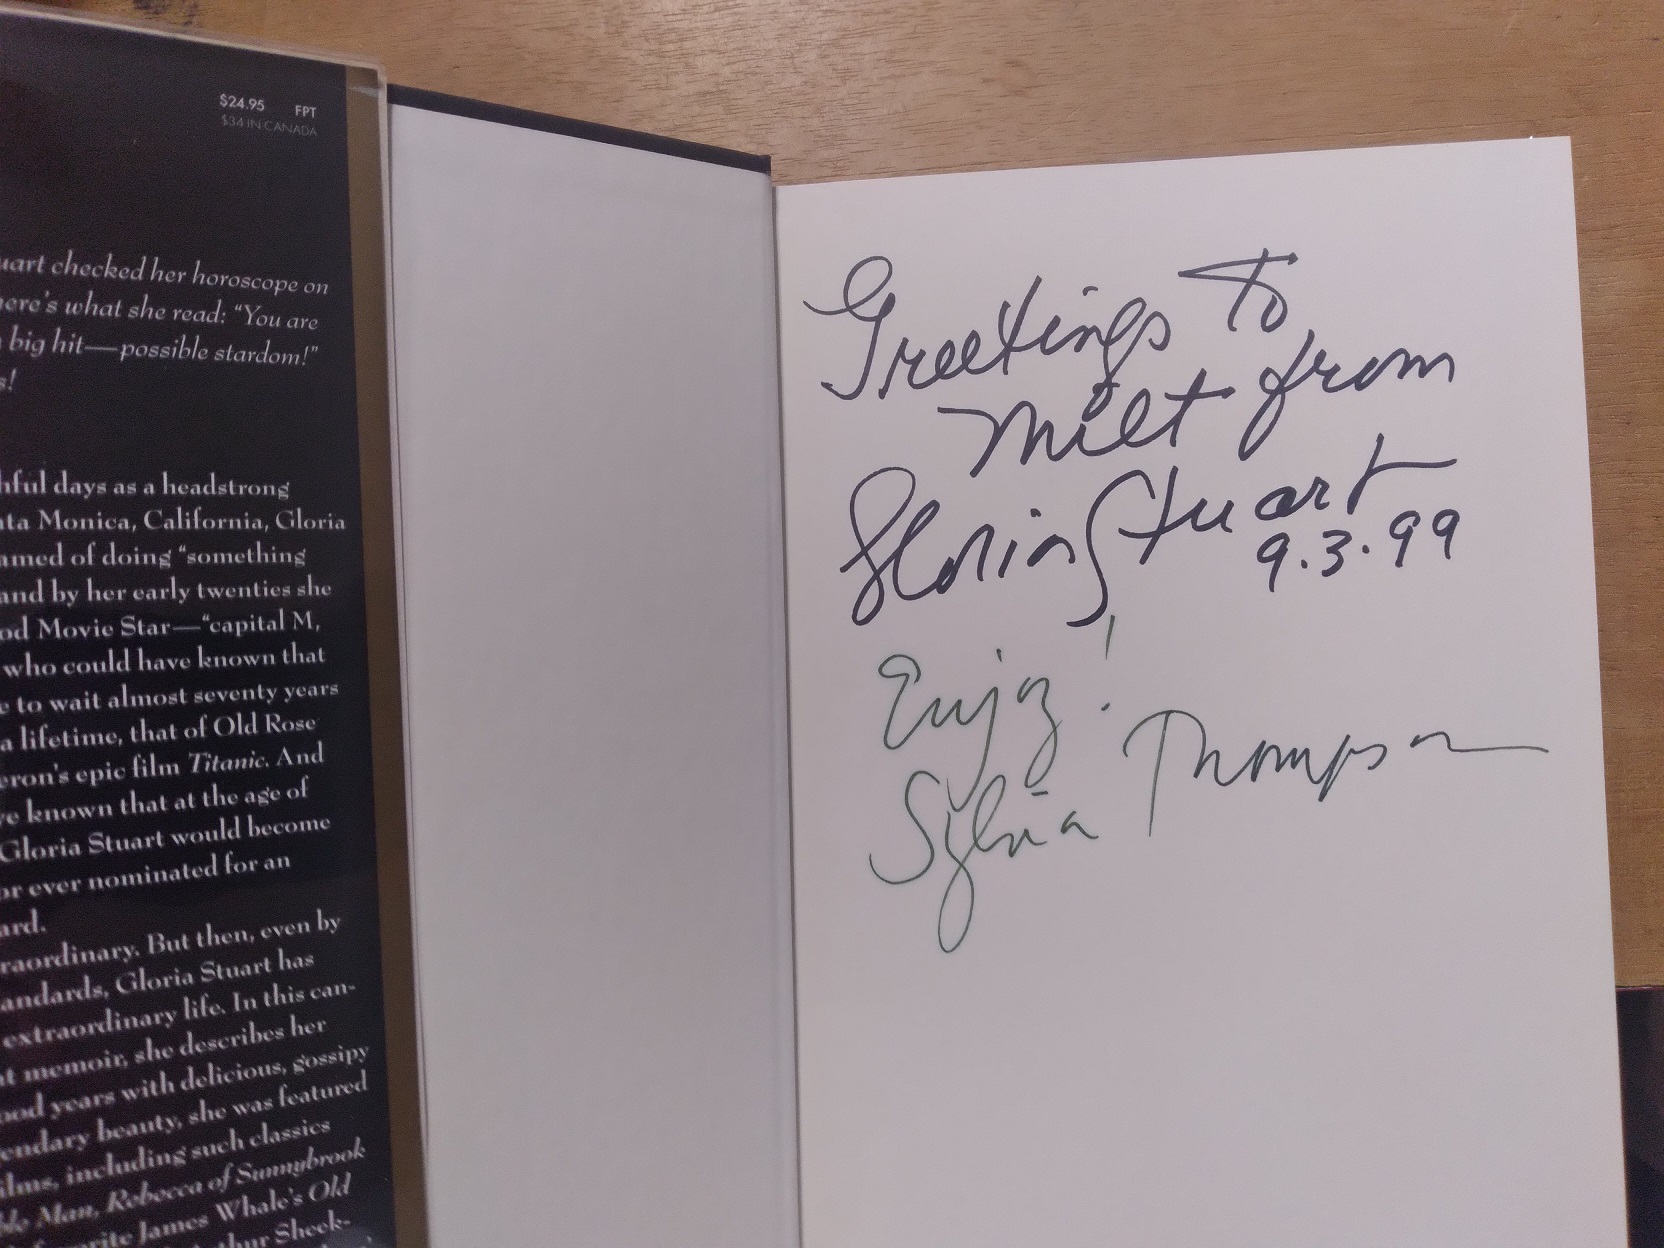 $24.95 FPT
$34 IN CANADA
uart checked her horoscope on
ere's what she read: "You are
big hit—possible stardom!"
s!
hful days as a headstrong
ta Monica, California, Gloria
amed of doing "something
and by her early twenties she
od Movie Star—"capital M,
who could have known that
e to wait almost seventy years
a lifetime, that of Old Rose
eron's epic film Titanic. And
ve known that at the age of
Gloria Stuart would become
or ever nominated for an
ard.
raordinary. But then, even by
andards, Gloria Stuart has
extraordinary life. In this can-
t memoir, she describes her
ood years with delicious, gossipy
endary beauty, she was featured
ilms, including such classics
ble Man, Rebecca of Sunnybrook
orite James Whale's Old
thur Sheek-
Greetings to
Milt from
Gloria Stuart
9.3.99
Enjoy!
Sylvia Thompson